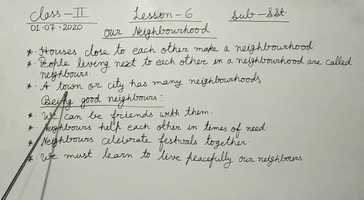 Class-II Lesson-6 Sub-SSt
01-07-2020 Our Neighbourhood
* Houses close to each other make a neighbourhood
* People living next to each other in a neighbourhood are called
neighbours
* A town or city has many neighbourhoods
Being good neighbours:
* We can be friends with them.
* Neighbours help each other in times of need
* Neighbours celebrate festivals together
* We must learn to live peacefully our neighbours